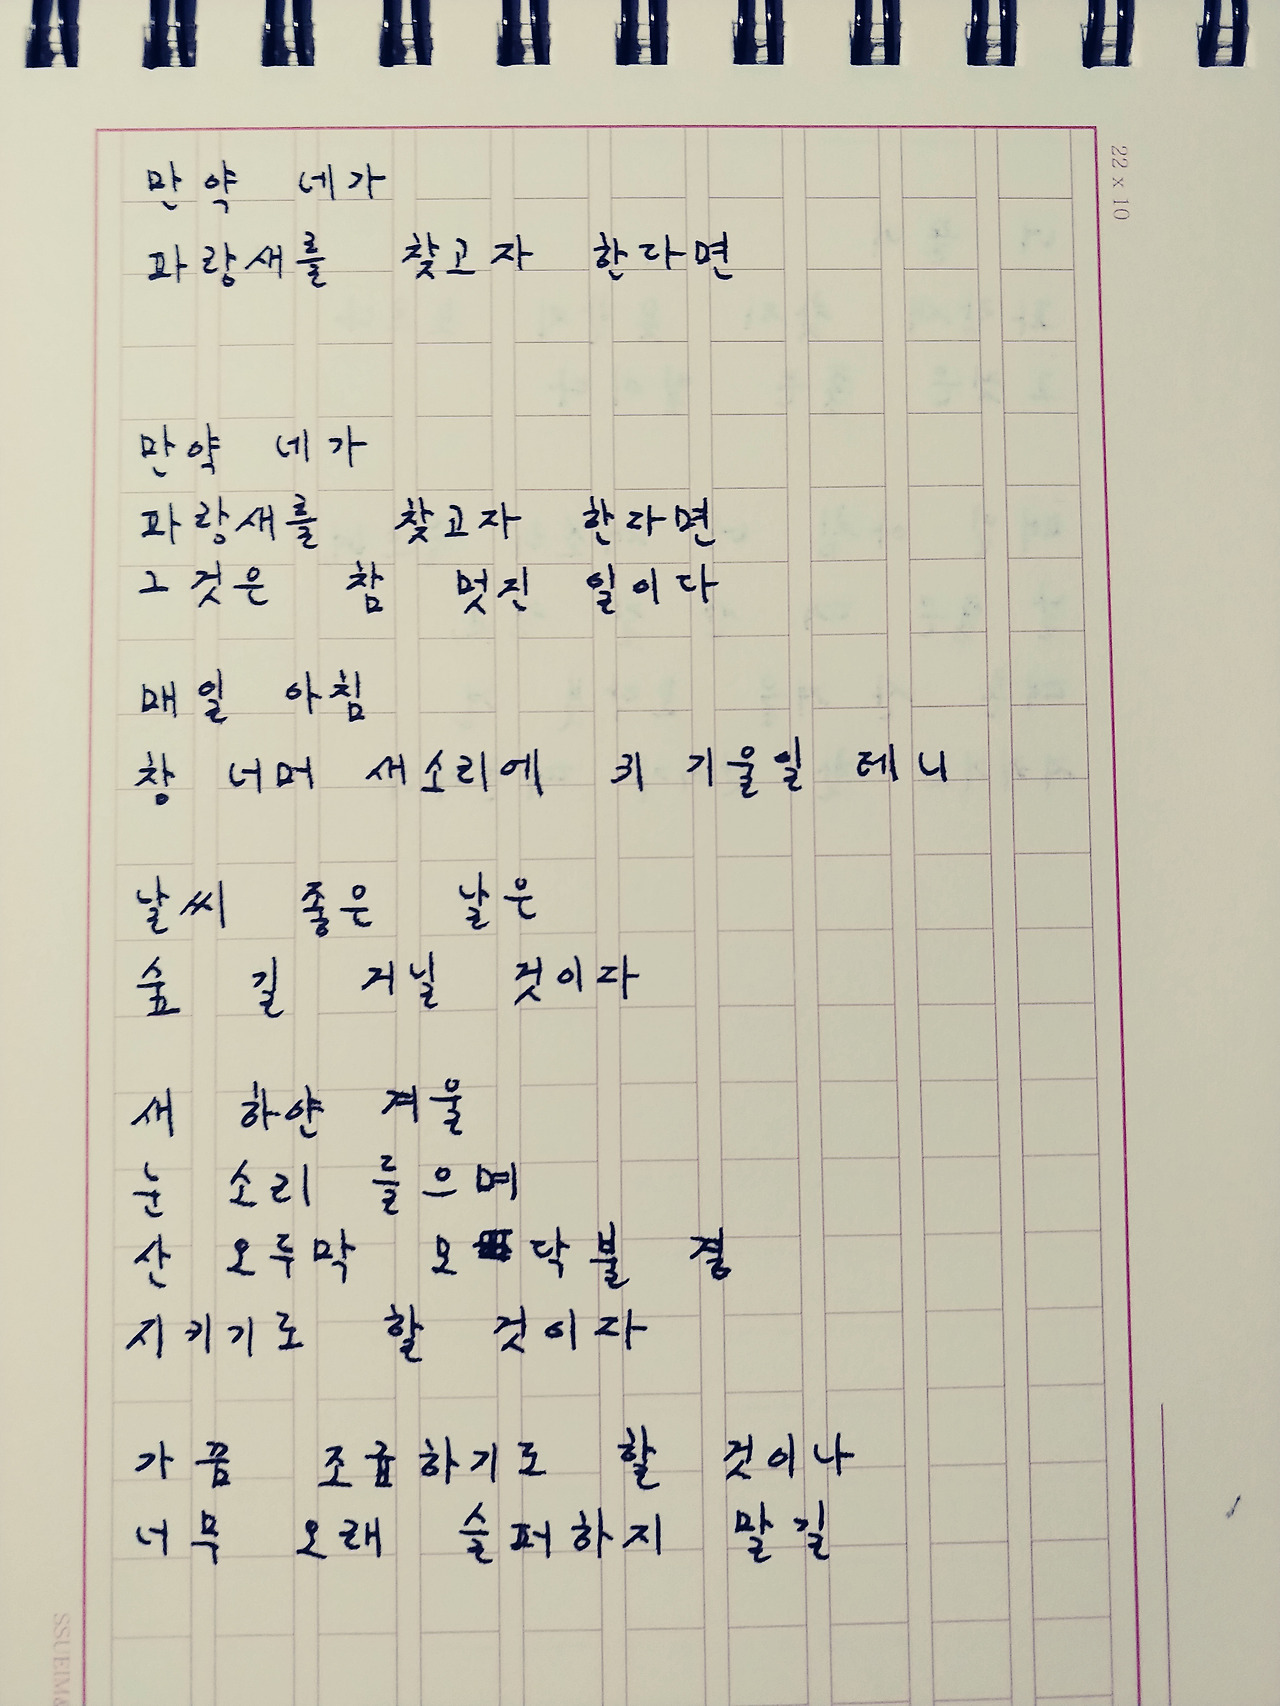 만약 네가
파랑새를 찾고자 한다면
만약 네가
파랑새를 찾고자 한다면
그것은 참 멋진 일이다
매일 아침
창 너머 새소리에 귀 기울일 테니
날씨 좋은 날은
숲 길 거닐 것이다
새 하얀 겨울
눈 소리 들으며
산 오두막 모닥불 곁
지키기도 할 것이다
가끔 조급하기도 할 것이나
너무 오래 슬퍼하지 말길
22 x 10